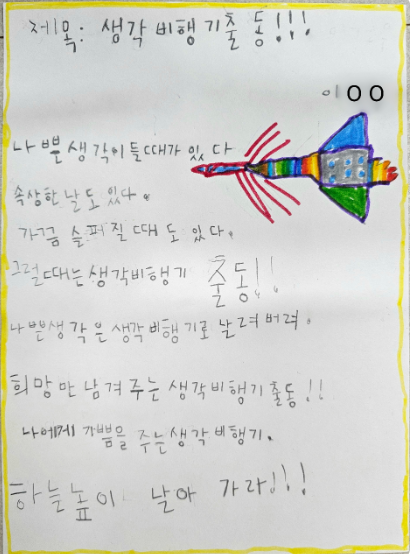 제목: 생각비행기출동!!!
이00
나쁜생각이들때가있다
속상한날도있다.
가끔 슬퍼질때도 있다.
그럴때는생각비행기 출동!!
나쁜생각은생각비행기로날려버려.
희망만남겨주는생각비행기출동!!
나에게 기쁨을 주는생각비행기.
하늘높이 날아 가라!!!